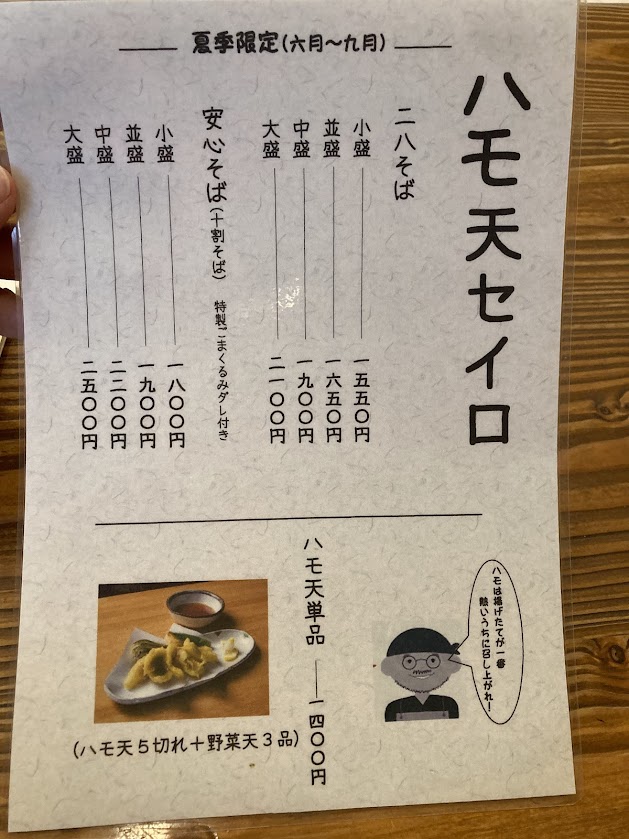 夏季限定(六月～九月)
ハモ天セイロ
二八そば
小盛 一五五〇円
並盛 一六五〇円
中盛 一九〇〇円
大盛 二一〇〇円
安心そば(十割そば) 特製ごまくるみダレ付き
小盛 一八〇〇円
並盛 一九〇〇円
中盛 二二〇〇円
大盛 二五〇〇円
ハモは揚げたてが一番
熱いうちに召し上がれ!
ハモ天単品 一四〇〇円
(ハモ天5切れ+野菜天3品)